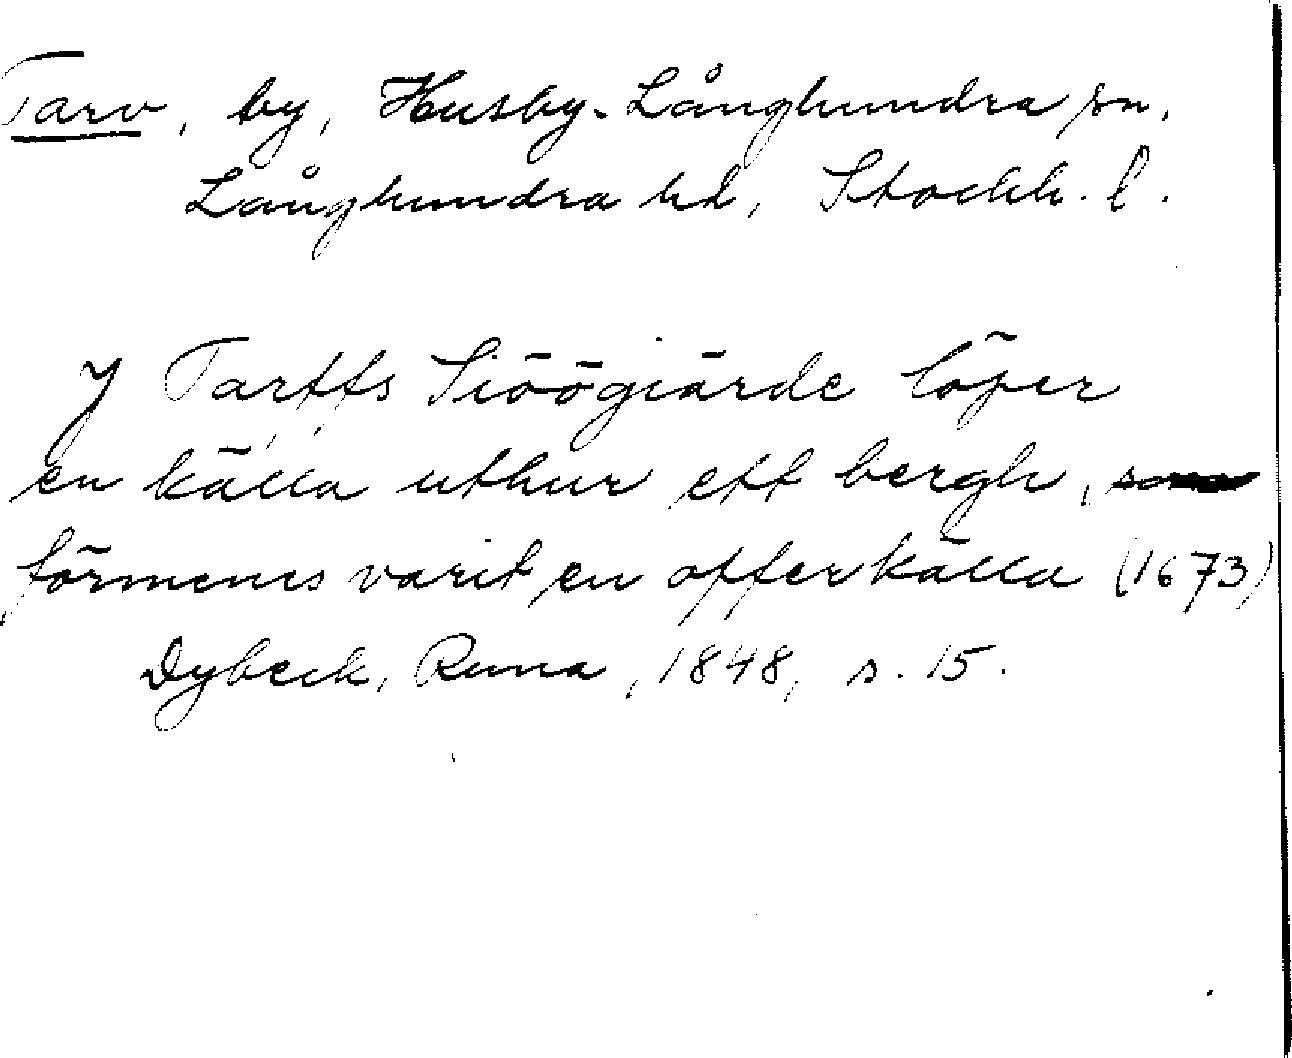 Tarv, by, Husby-Långhundra sn,
Långhundra hd, Stockh. l.
Y Tarffs Siöögiärde löper
en källa uthur ett bergh, som
förmenes varit en offerkälla (1673)
Dybeck, Runa, 1848, s. 15.